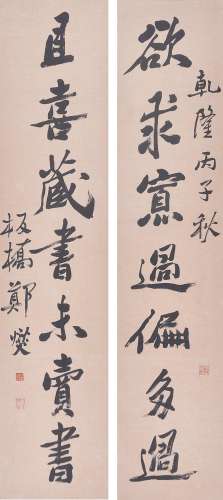 欲求寡過偏多過
乾隆丙子秋
且喜藏書未賣書
板橋鄭燮